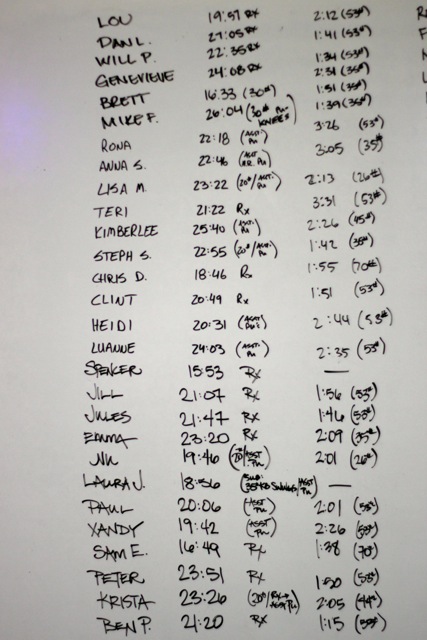 LOU 19:57 Rx 2:12 (53#)
DAN L. 27:05 Rx 1:41 (53#)
WILL P. 22:35 Rx 1:34 (53#)
GENEVIEVE 24:08 Rx 2:31 (35#)
BRETT 16:33 (30#) 1:51 (35#)
MIKE F. 26:04 (30# PU- KNEES) 1:39 (35#)
RONA 22:18 (ASST. PU) 3:26 (53#)
ANNA S. 22:46 (ASST. PU) 3:05 (35#)
LISA M. 23:22 (20#/ASST. PU) 2:13 (26#)
TERI 21:22 Rx 3:31 (53#)
KIMBERLEE 25:40 (ASST. PU) 2:26 (45#)
STEPH S. 22:55 (20#/ASST. PU) 1:42 (35#)
CHRIS D. 18:46 Rx 1:55 (70#)
CLINT 20:49 Rx 1:51 (53#)
HEIDI 20:31 (ASST. PU'S) 2:44 (53#)
LUANNE 24:03 (ASST. PU) 2:35 (53#)
SPENCER 15:53 Rx —
JILL 21:07 Rx 1:56 (53#)
JULES 21:47 Rx 1:46 (53#)
EMMA 23:20 Rx 2:09 (35#)
19:46 (20#/ASST. PU) 2:01 (26#)
LAURA J. 18:56 (SUB: 35# KB SWINGS/ASST PU) —
PAUL 20:06 (ASST PU) 2:01 (53#)
XANDY 19:42 (ASST PU) 2:26 (53#)
SAM E. 16:49 Rx 1:38 (70#)
PETER 23:51 Rx 1:50 (53#)
KRISTA 23:26 (20#/Rx+ ASST PU) 2:05 (44#)
BEN P. 21:20 Rx 1:15 (53#)